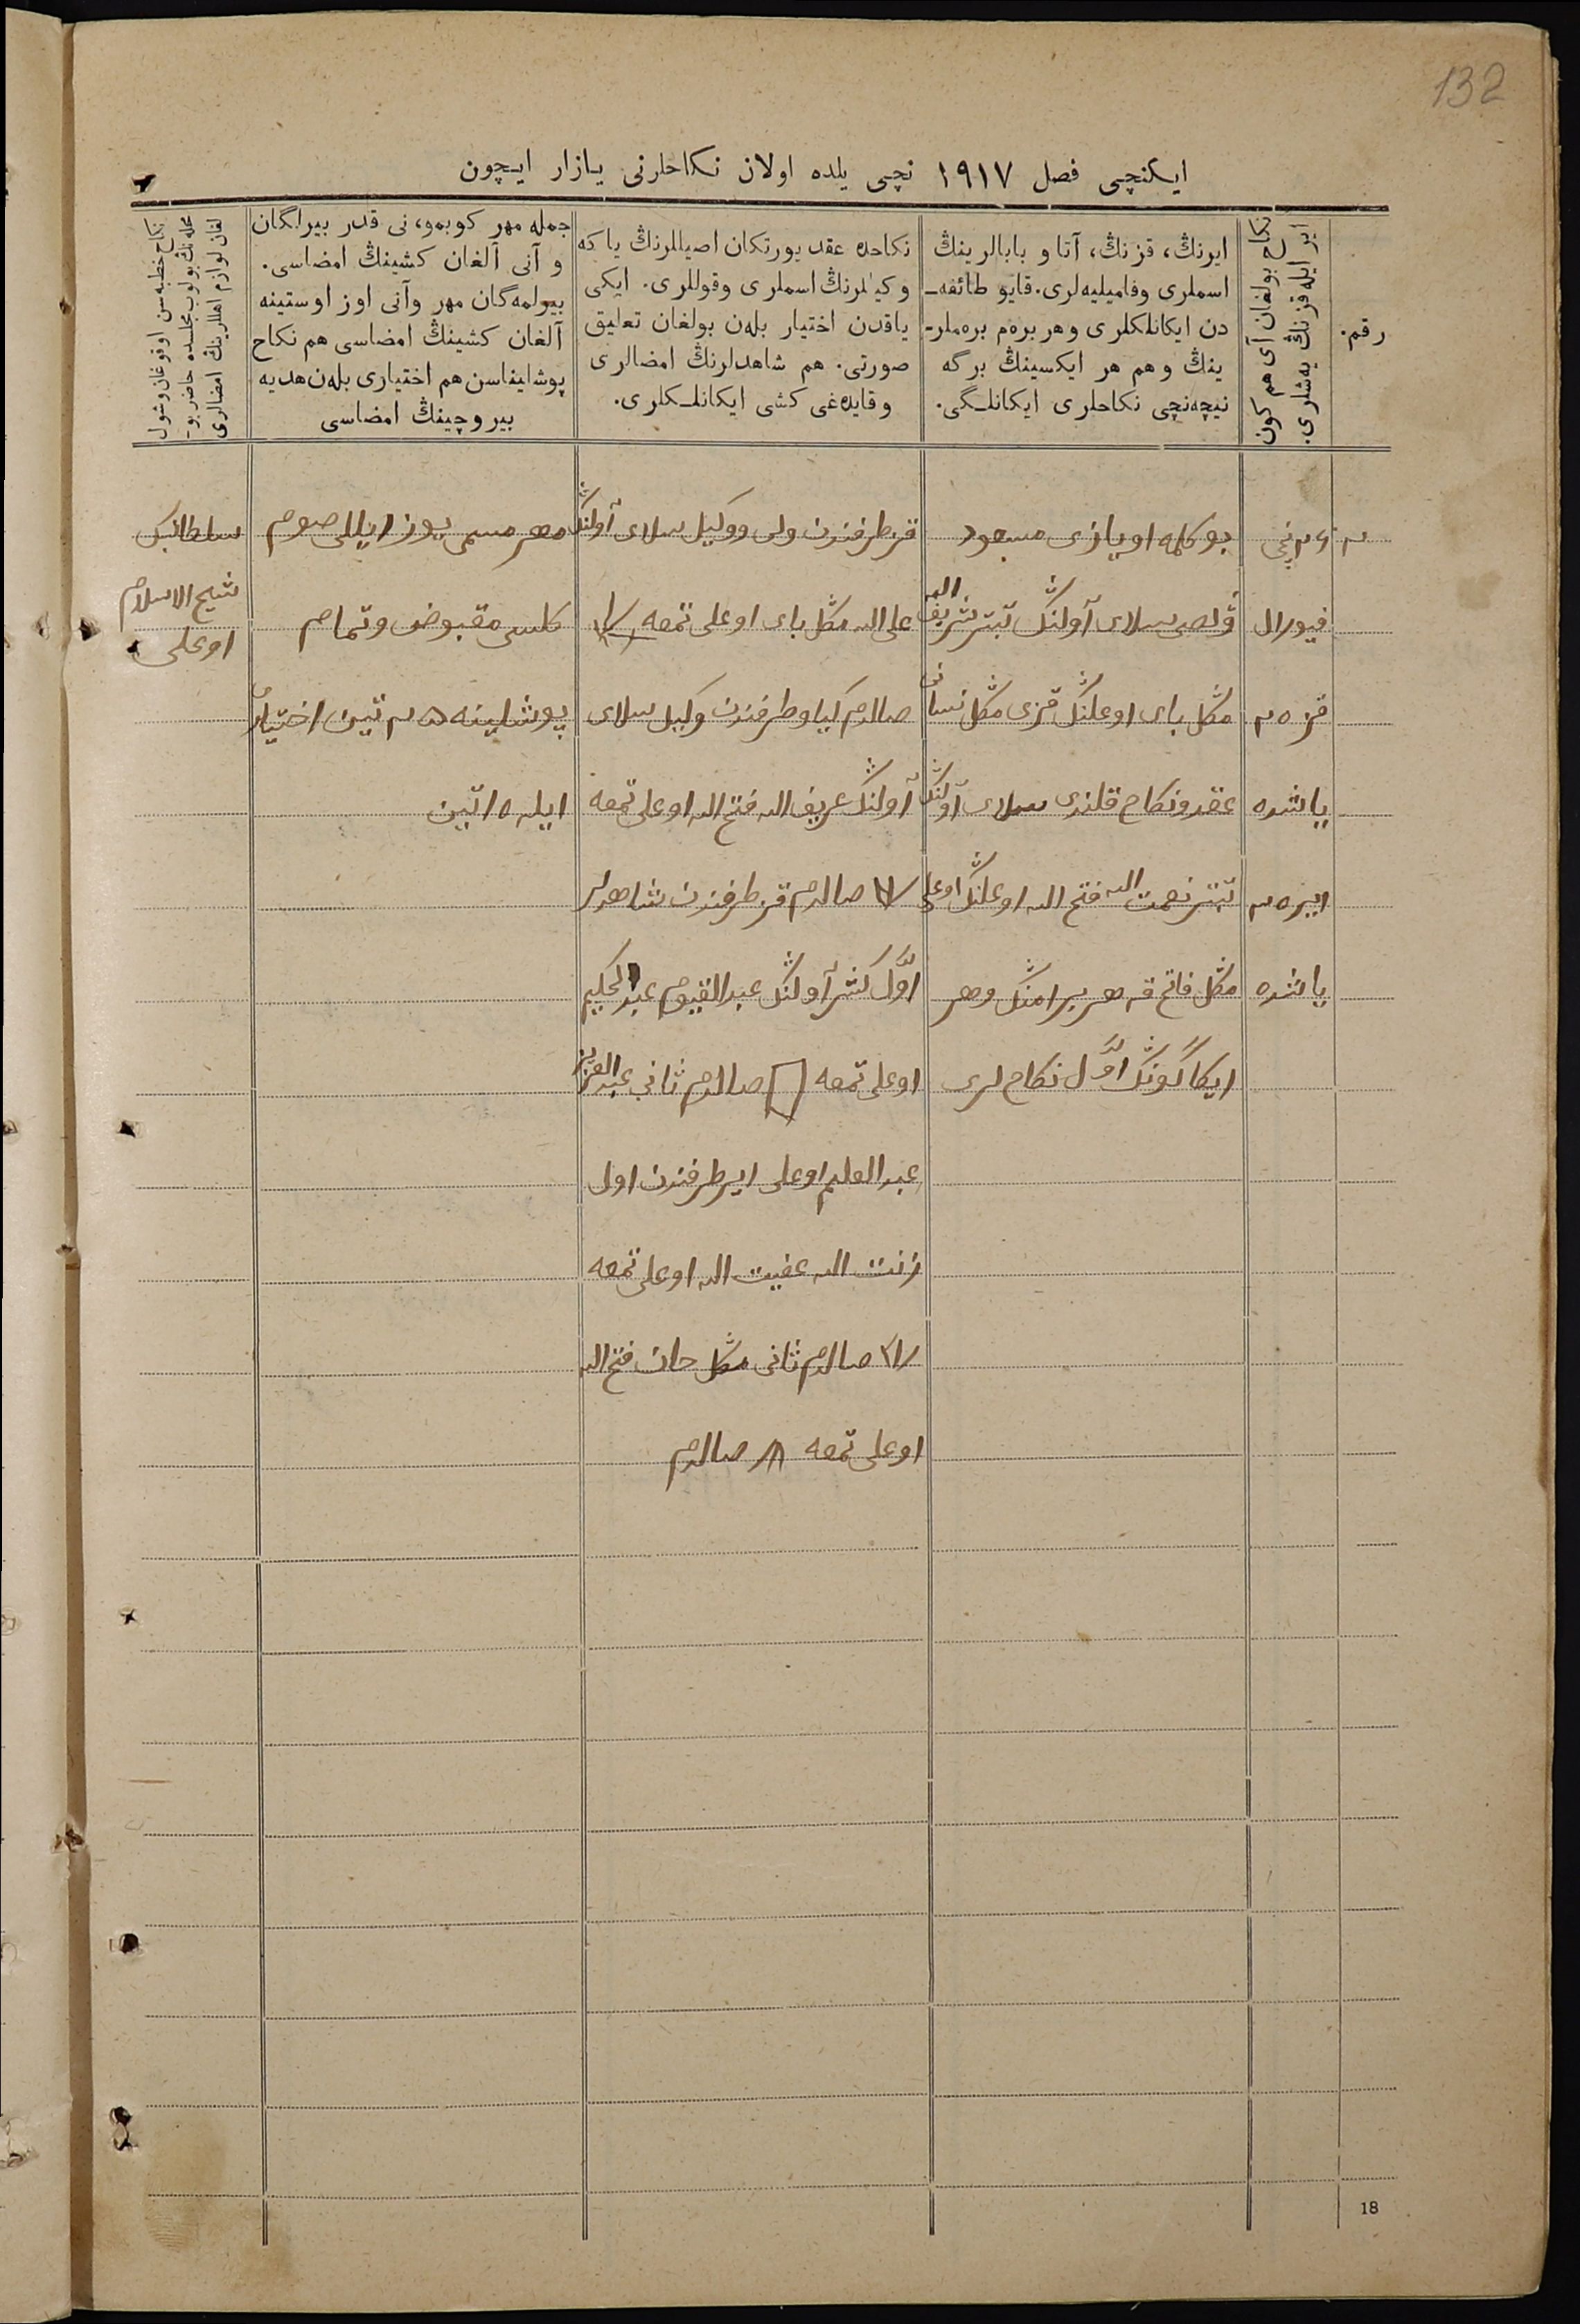 132
ایکنچی فصل ١٩١٧ نچی یلده اولان نکاحلرنی یازار ایچون
رقم.
نکاح بولغان آی هم کون
ایر ایله قزنڭ یه‌شلری.
ایرنڭ، قزنڭ، آتا و بابالرینڭ
اسملری وفامیلیه‌لری. قایو طائفه‌ـ
دن ایکانلکلری وهر بره‌م بره‌ملرـ
ینڭ وهم هر ایکسینڭ برگه
نیچه‌نچی نکاحلری ایکانلـگی.
نکاحده عقد یورتکان اصیللرنڭ یاکه
وکیللرنڭ اسملری وقوللری. ایکی
یاقدن اختیار بله‌ن بولغان تعلیق
صورتی. هم شاهدلرنڭ امضالری
وقایده‌غی کشی ایکانلـکلری.
جمله مهر کوبمو، نی قدر بیرلگان
و آنی آلغان کشینڭ امضاسی.
بیرلمه‌گان مهر وآنی اوز اوستینه
آلغان کشینڭ امضاسی هم نکاح
پوشلیناسن هم اختیاری بله‌ن هدیه
بیروچینڭ امضاسی
نکاح خطبه‌سن اوقوغان وشول
محله‌نڭ بولوب مجلسده حاضر بوـ
لغان لوازم اهللرینڭ امضالری
فیورال
قز ٢٥
یاشده
ایر ٢٥
یاشده
بوکلمه اویازی مسعود
مڭل بای اوغلنڭ قزی مڭل نسانی
عقد ونکاح قلندی سلای آولنڭ
تبتر نعمت الله فتح الله اوغلنڭ اوغلی
مڭل فاتح قه هر برامنڭ وهر
ایکاگونڭ اوّل نکاح لری
قز طرفندن ولی ووکیل سلای آولنڭ
علی الله مڭل بای اوغلی تمغه
صالدم کیاو طرفندن وکیل سلای
آولنڭ عریف الله فتح الله اوغلی تمغه
صالدم قز طرفندن شاهدلر
اوّل کشر آولنڭ عبدالقیوم عبدالحکیم
اوغلی تمغه صالدم ثانی عبدالعزیز
عبدالعلیم اوغلی ایر طرفندن اول
زنت الله عفیت الله اوغلی تمغه
صالدم ثانی مڭل جان فتح الله
اوغلی تمغه صالدم
مهر مسمی یوز ایللی صوم
کلسی مقبوض وتمام
پوشلینه ٢٥ تین اختیار
ایله ١٥ تین
سلطانبک
شیخ الاسلام
اوغلی
18